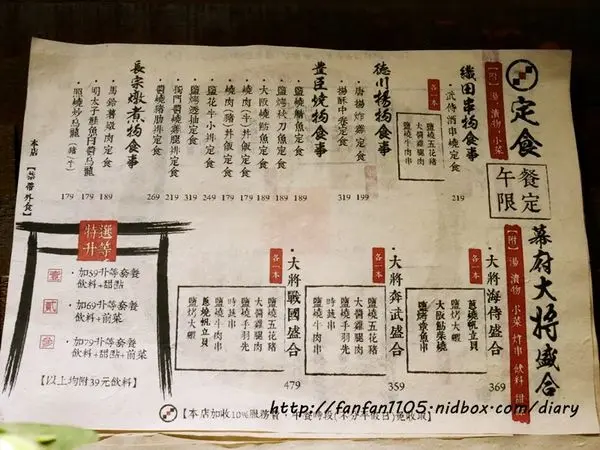 定食
午餐限定
【附】湯、漬物、小菜
織田串物食事
・武侍酒串燒定食 219
各一本
鹽燒五花豬
大醬雞腿肉
鹽燒牛肉串
德川揚物食事
・唐揚炸雞定食 199
・揚酥中卷定食 319
豐臣燒物食事
・鹽燒鯖魚定食 189
・鹽烤秋刀魚定食 189
・大阪燒魚定食 189
・燒肉(豬)丼飯定食 179
・燒肉(牛)丼飯定食 189
・鹽花牛小排定食 249
・鹽烤透抽定食 219
・獨門醬燒雞腿排定食 319
・醬燒豬肋排定食 269
長宗燉煮物食事
・馬鈴薯燉肉定食 189
・明太子鮭魚白醬烏龍 179
・照燒炒烏龍(豬)(牛) 179
本店【禁帶外食】
幕府大將盛合
【附】湯、漬物、小菜、炸串、飲料、甜
・大將海侍盛合 369
各一本
蔥燒帆立貝
鹽烤大蝦
大阪魷柴燒
鹽烤章魚串
・大將奔武盛合 359
各一本
鹽燒五花豬
大醬雞腿肉
鹽燒手羽先
時蔬串
鹽燒牛肉串
・大將戰國盛合 479
各一本
鹽燒五花豬
大醬雞腿肉
鹽燒手羽先
時蔬串
鹽燒牛肉串
蔥燒帆立貝
鹽烤大蝦
特選升等
壹 ・加59升等套餐
飲料+甜點
貳 ・加69升等套餐
飲料+前菜
參 ・加79升等套餐
飲料+甜點+前菜
【以上均附39元飲料】
【本店加收10%服務費，午餐時段(不分平假日)免收取】
http://fanfan1105.nidbox.com/diary